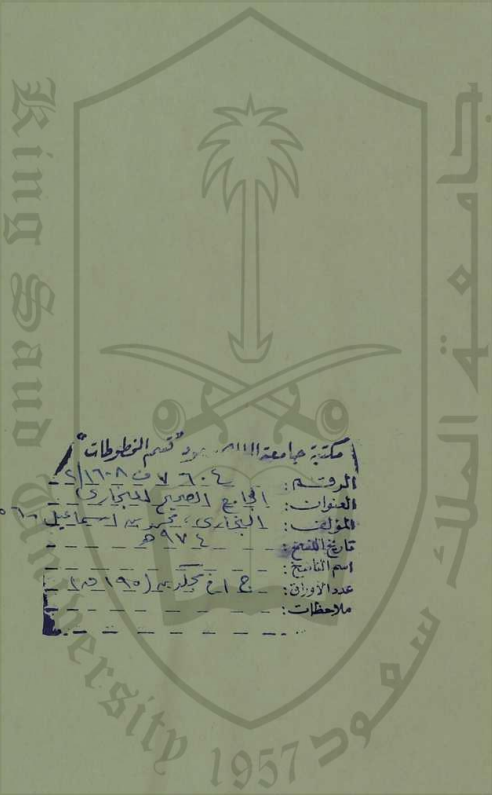 King Saud University 1957
جامعة الملك سعود
مكتبة جامعة الملك سعود "قسم المخطوطات"
الرقم: ٧٦٠٤ ف ١٦٠٨/
العنوان: الجامع الصحيح للبخاري
المؤلف: البخاري، محمد بن اسماعيل
تاريخ النسخ: ٩٧٤ هـ
اسم الناسخ:
عدد الأوراق:
ملاحظات: